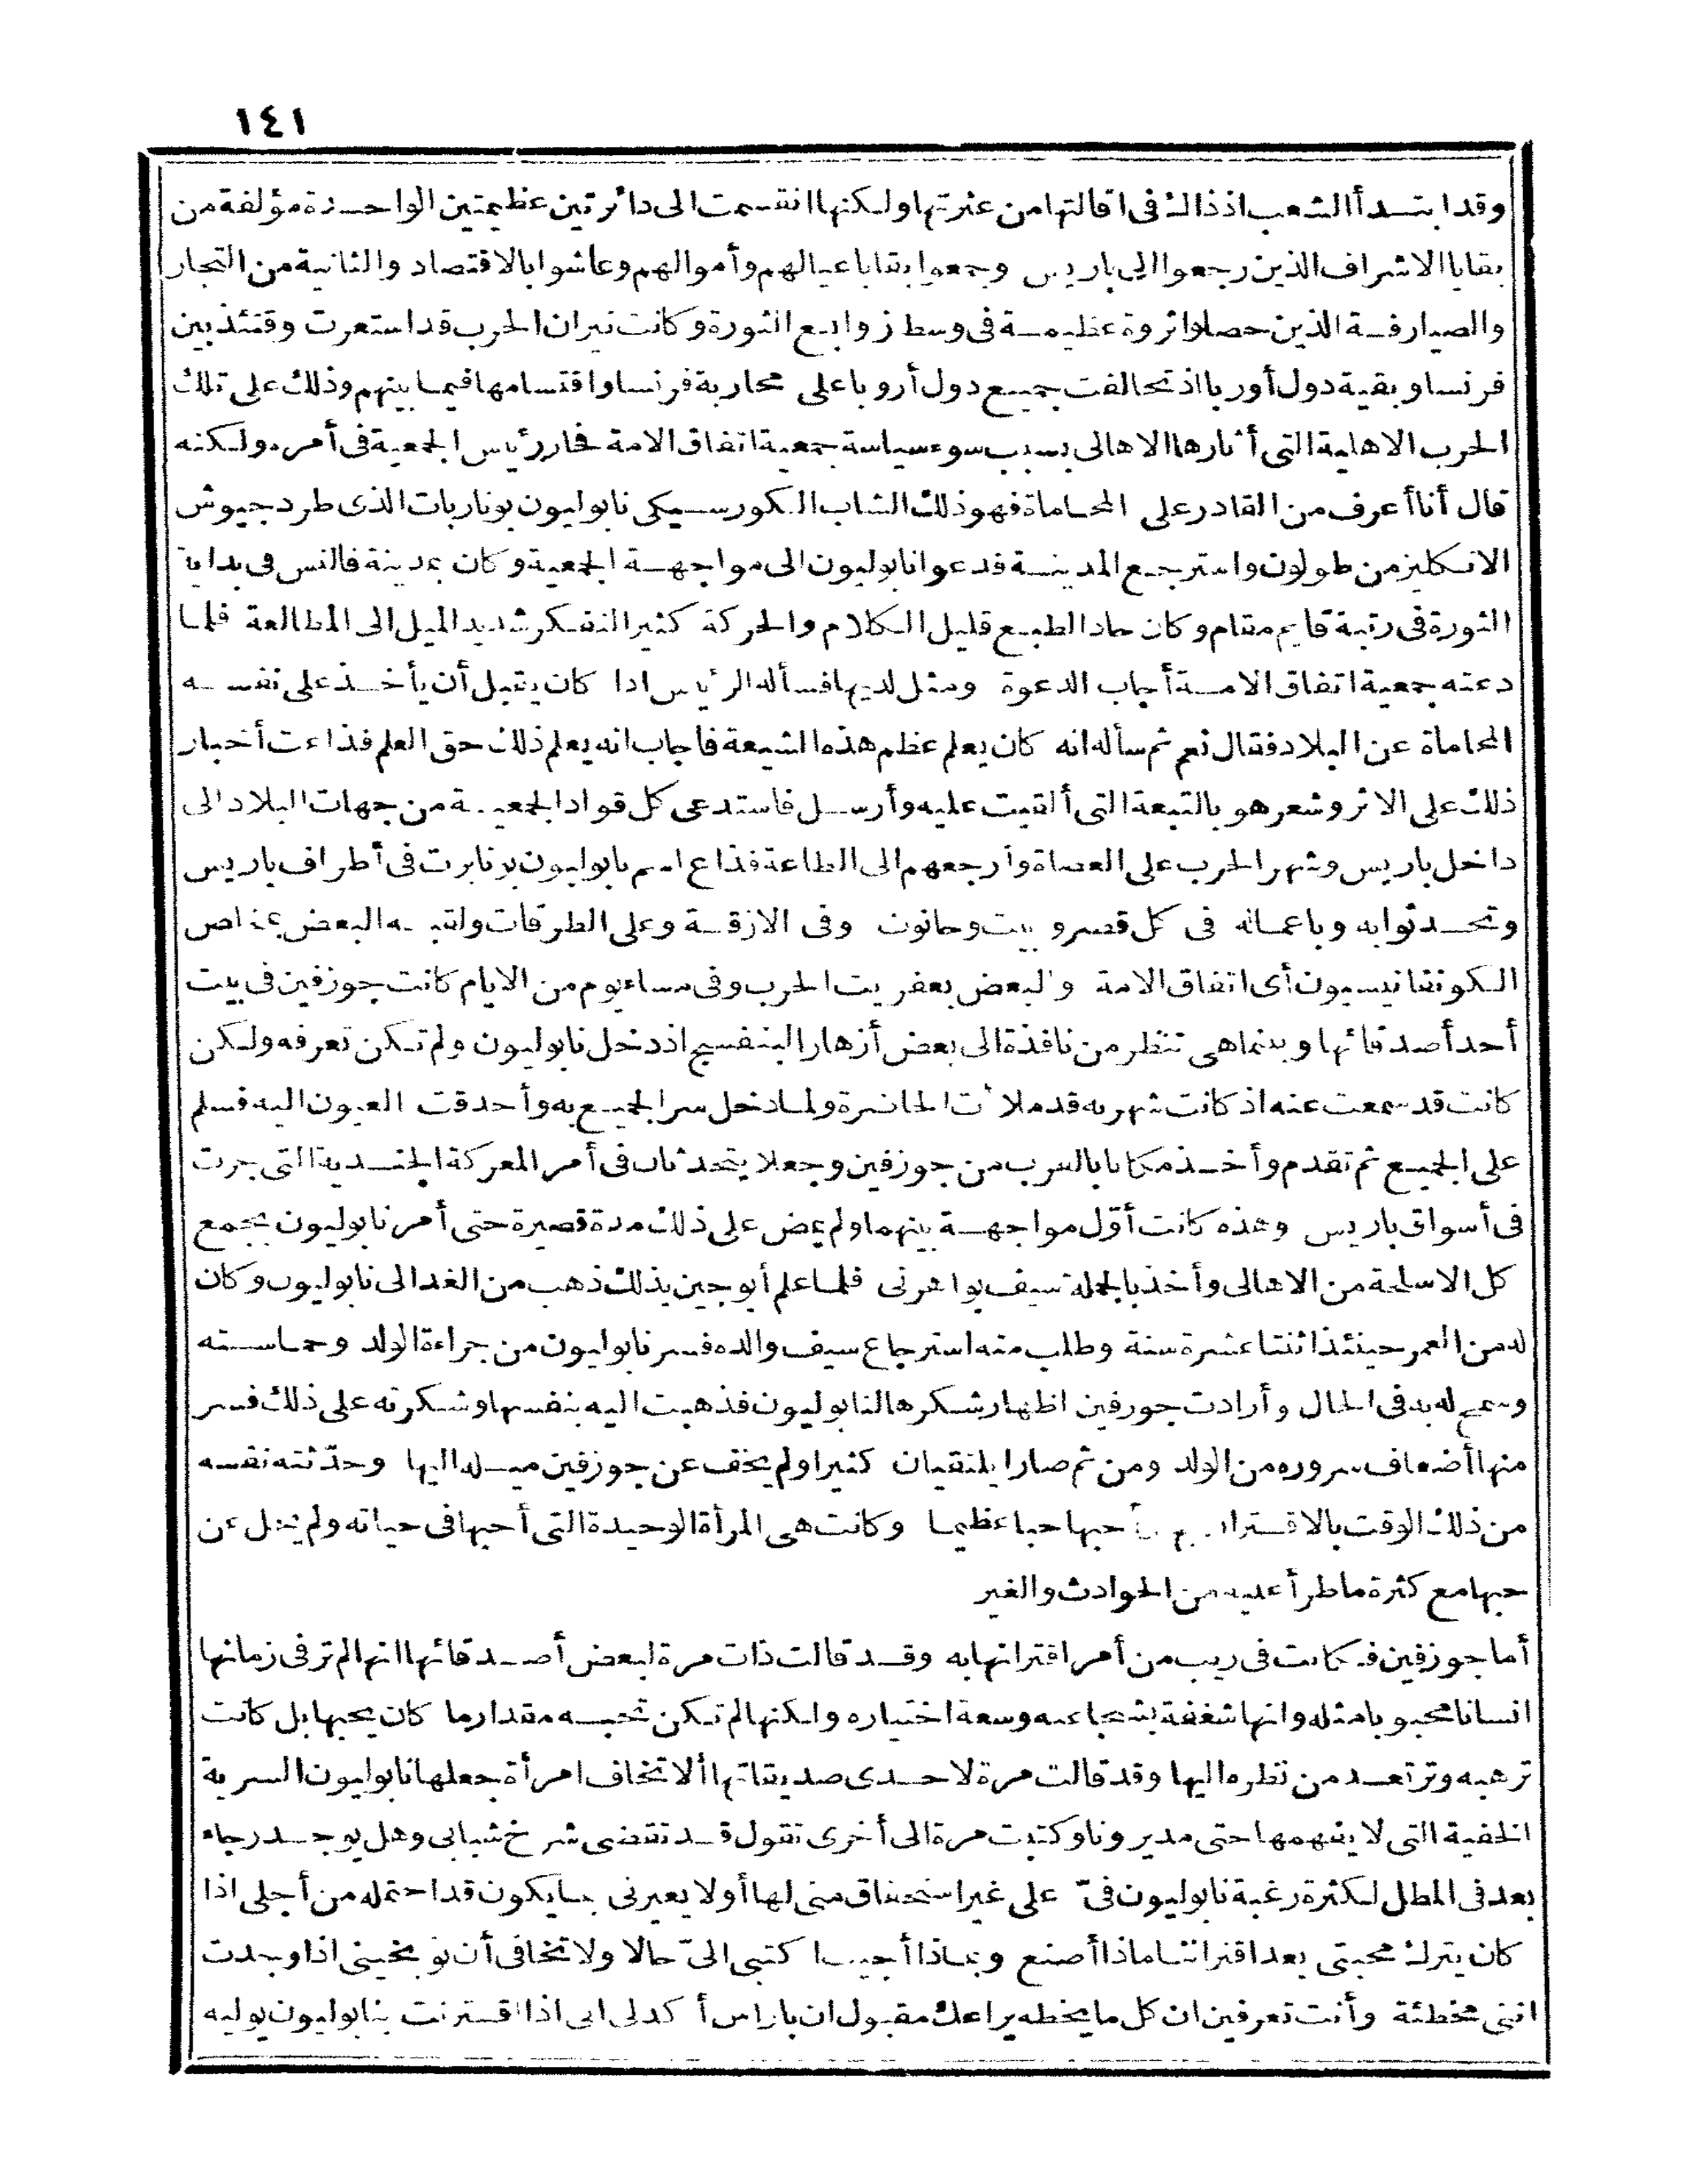 ١٤١
وقد ابتدأ الشعب اذ ذاك فى اقالتها من عثرتها ولكنها انقسمت الى دائرتين عظيمتين الواحدة مؤلفة من
بقايا الاشراف الذين رجعوا الى باريس وجمعوا بقايا عيالهم وأموالهم وعاشوا بالاقتصاد والثانية من التجار
والصيارفة الذين حصلوا ثروة عظيمة فى وسط زوابع الثورة وكانت نيران الحرب قد استعرت وقتئذ بين
فرنسا وبقية دول أوربا اذ تحالفت جميع دول أروبا على محاربة فرنسا واقتسامها فيما بينهم وذلك على تلك
الحرب الاهلية التى أثارها الاهالى بسبب سوء سياسة جمعية اتفاق الامة فحار رئيس الجمعية فى أمره ولكنه
قال أنا أعرف من القادر على المحاماة فهو ذلك الشاب الكورسيكى نابوليون بوناربات الذى طرد جيوش
الانكليز من طولون واسترجع المدينة فدعوا نابوليون الى مواجهة الجمعية وكان بمدينة فالنس فى بداية
الثورة فى رتبة قايم مقام وكان حاد الطبع قليل الكلام والحركة كثير التفكر شديد الميل الى المطالعة فلما
دعته جمعية اتفاق الامة أجاب الدعوة ومثل لديها فسأله الرئيس اذا كان يقبل أن يأخذ على نفسه
المحاماة عن البلاد فقال نعم ثم سأله انه كان يعلم عظم هذه الشيعة فاجاب انه يعلم ذلك حق العلم فذاعت أخبار
ذلك على الاثر وشعر هو بالتبعة التى ألقيت عليه وأرسل فاستدعى كل قواد الجمعية من جهات البلاد الى
داخل باريس وشهر الحرب على العصاة وأرجعهم الى الطاعة فذاع اسم نابوليون بونابرت فى أطراف باريس
وتحدثوا به وباعماله فى كل قصر وبيت وحانون وفى الازقة وعلى الطرقات ولقبه البعض بمخلص
الكونفانيسيون أى اتفاق الامة والبعض بعفريت الحرب وفى مساء يوم من الايام كانت جوزفين فى بيت
أحد أصدقائها وبينما هى تنظر من نافذة الى بعض أزهار البنفسج اذ دخل نابوليون ولم تكن تعرفه ولكن
كانت قد سمعت عنه اذ كانت شهرته قد ملأت الحاضرة ولما دخل سر الجميع به وأحدقت العيون اليه فسلم
على الجميع ثم تقدم وأخذ مكانا بالقرب من جوزفين وجعلا يتحدثان فى أمر المعركة الجندية التى جرت
فى أسواق باريس وهذه كانت أوّل مواجهة بينهما ولم يمض على ذلك مدة قصيرة حتى أمر نابوليون بجمع
كل الاسلحة من الاهالى وأخذ بالجملة سيف بواهرنى فلما علم أبوجين بذلك ذهب من الغد الى نابوليون وكان
له من العمر حينئذ اثنتا عشرة سنة وطلب منه استرجاع سيف والده فسر نابوليون من جراءة الولد وحماسته
وسمح له به فى الحال وأرادت جوزفين اظهار شكرها لنابوليون فذهبت اليه بنفسها وشكرته على ذلك فسر
منها أضعاف سروره من الولد ومن ثم صارا يلتقيان كثيرا ولم يخف عن جوزفين ميله اليها وحدّثته نفسه
من ذلك الوقت بالاقتران أحبها حبا عظيما وكانت هى المرأة الوحيدة التى أحبها فى حياته ولم ينزل عن
حبها مع كثرة ما طرأ عليه من الحوادث والغير
أما جوزفين فكانت فى ريب من أمر اقترانها به وقد قالت ذات مرة لبعض أصدقائها انها لم تر فى زمانها
انسانا محبوبا مثله وانها شغفة بشجاعته وسعة اختياره ولكنها لم تكن تحبه مقدار ما كان يحبها بل كانت
ترهبه وترتعد من نظره اليها وقد قالت مرة لاحدى صديقاتها ألا تخاف امرأة جعلها نابوليون السرية
الخفية التى لا يفهمها حتى مديرونا وكتبت مرة الى أخرى تقول قد تقضى شرخ شبابى وهل يوجد رجاء
بعد فى المطل لكثرة رغبة نابوليون فىّ على غير استحقاق منى لها أولا يعيرنى بما يكون قد احتمله من أجلى اذا
كان يترك محبتى بعد اقتراننا ماذا أصنع وبماذا أجيب كتبى الىّ حالا ولا تخافى أن توبخينى اذا وجدت
اننى مخطئة وأنت تعرفين ان كل ما يخطه يراعك مقبول ان باراس أكد لى انى اذا اقترنت بنابوليون يوليه